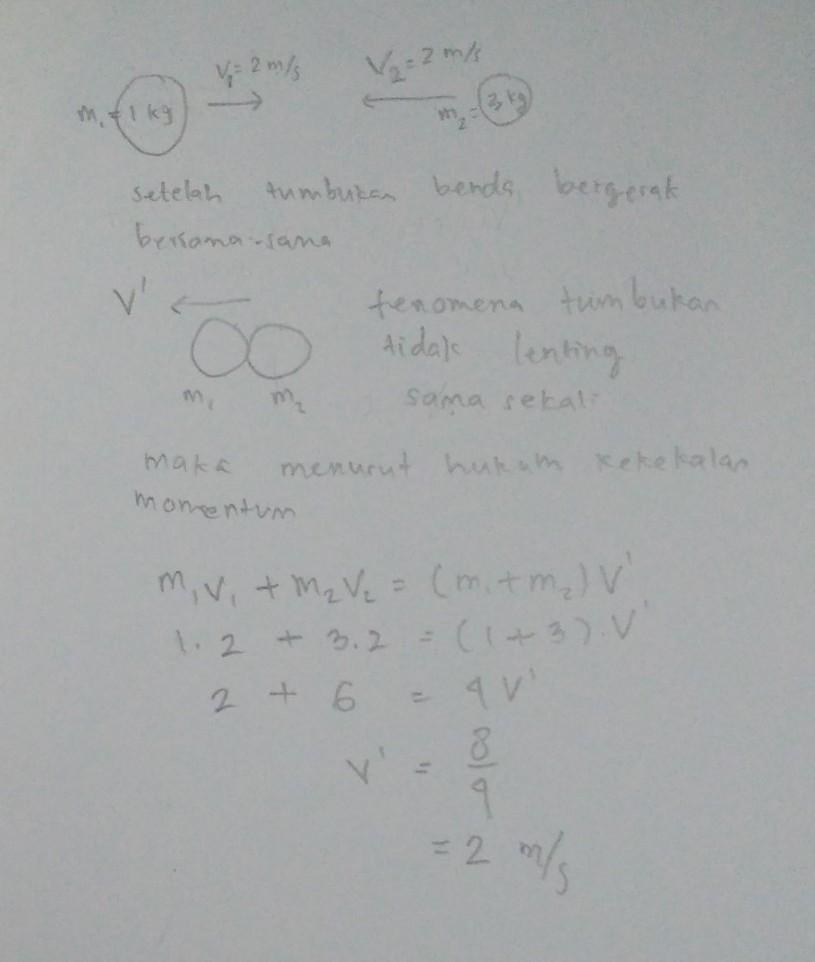 V₁= 2 m/s
V₂= 2 m/s
m₁= 1 kg
m₂= 3 kg
setelah tumbukan benda bergerak
bersama-sama
V'
fenomena tumbukan
tidak lenting
sama sekali
m₁ m₂
maka menurut hukum kekekalan
momentum
m₁V₁ + m₂V₂ = (m₁+m₂)V'
1.2 + 3.2 = (1+3).V'
2 + 6 = 4 V'
V' = 8/4
= 2 m/s